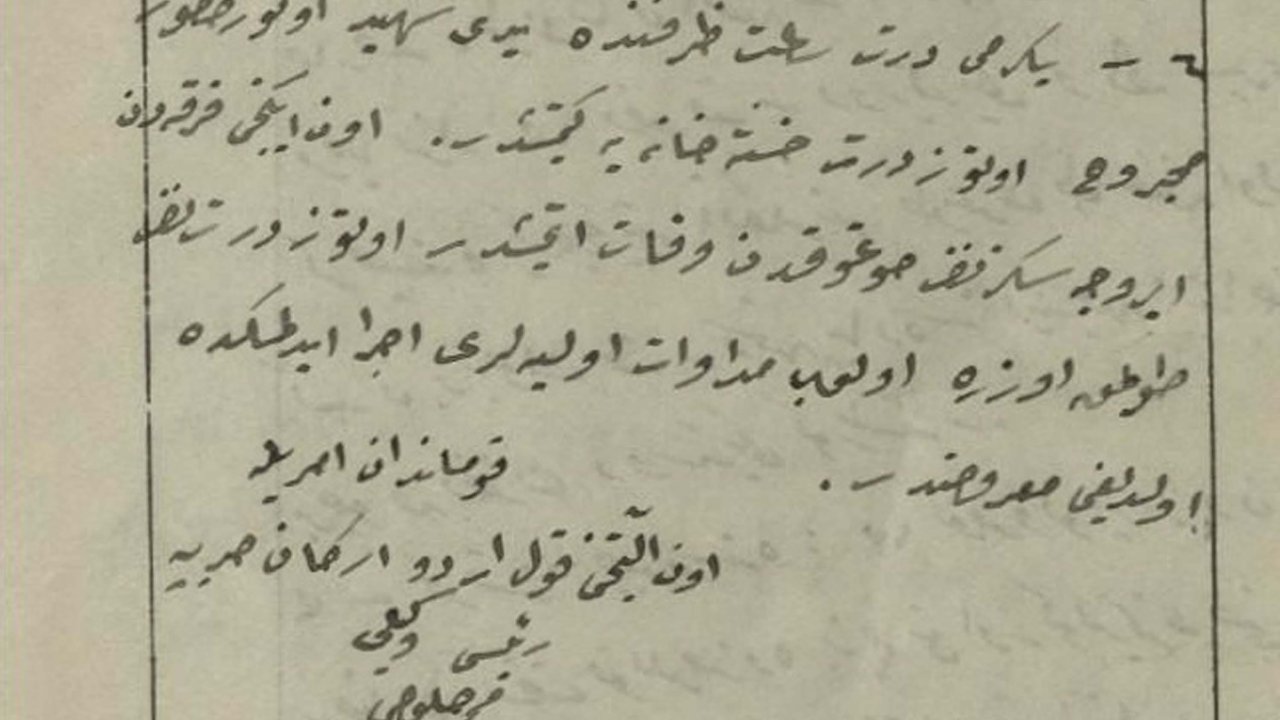 ٤ – یکرمی درت ساعت ظرفنده یدی شهید اوتوز
مجروح اوتوز درت خسته خانه یه کیتمشدر. اون ایکنجی فرقه دن
ایروجه سکز نفر صوغوقدن وفات ایتمشدر اوتوز درت نفر
طوكمق اوزره اولوب مداوات اولیه لری اجرا ایدلمکده
اولدیغی معروضدر. قوماندان امریله
اون آلتنجی قول اردو ارکان حربیه
رئیسی وکیلی